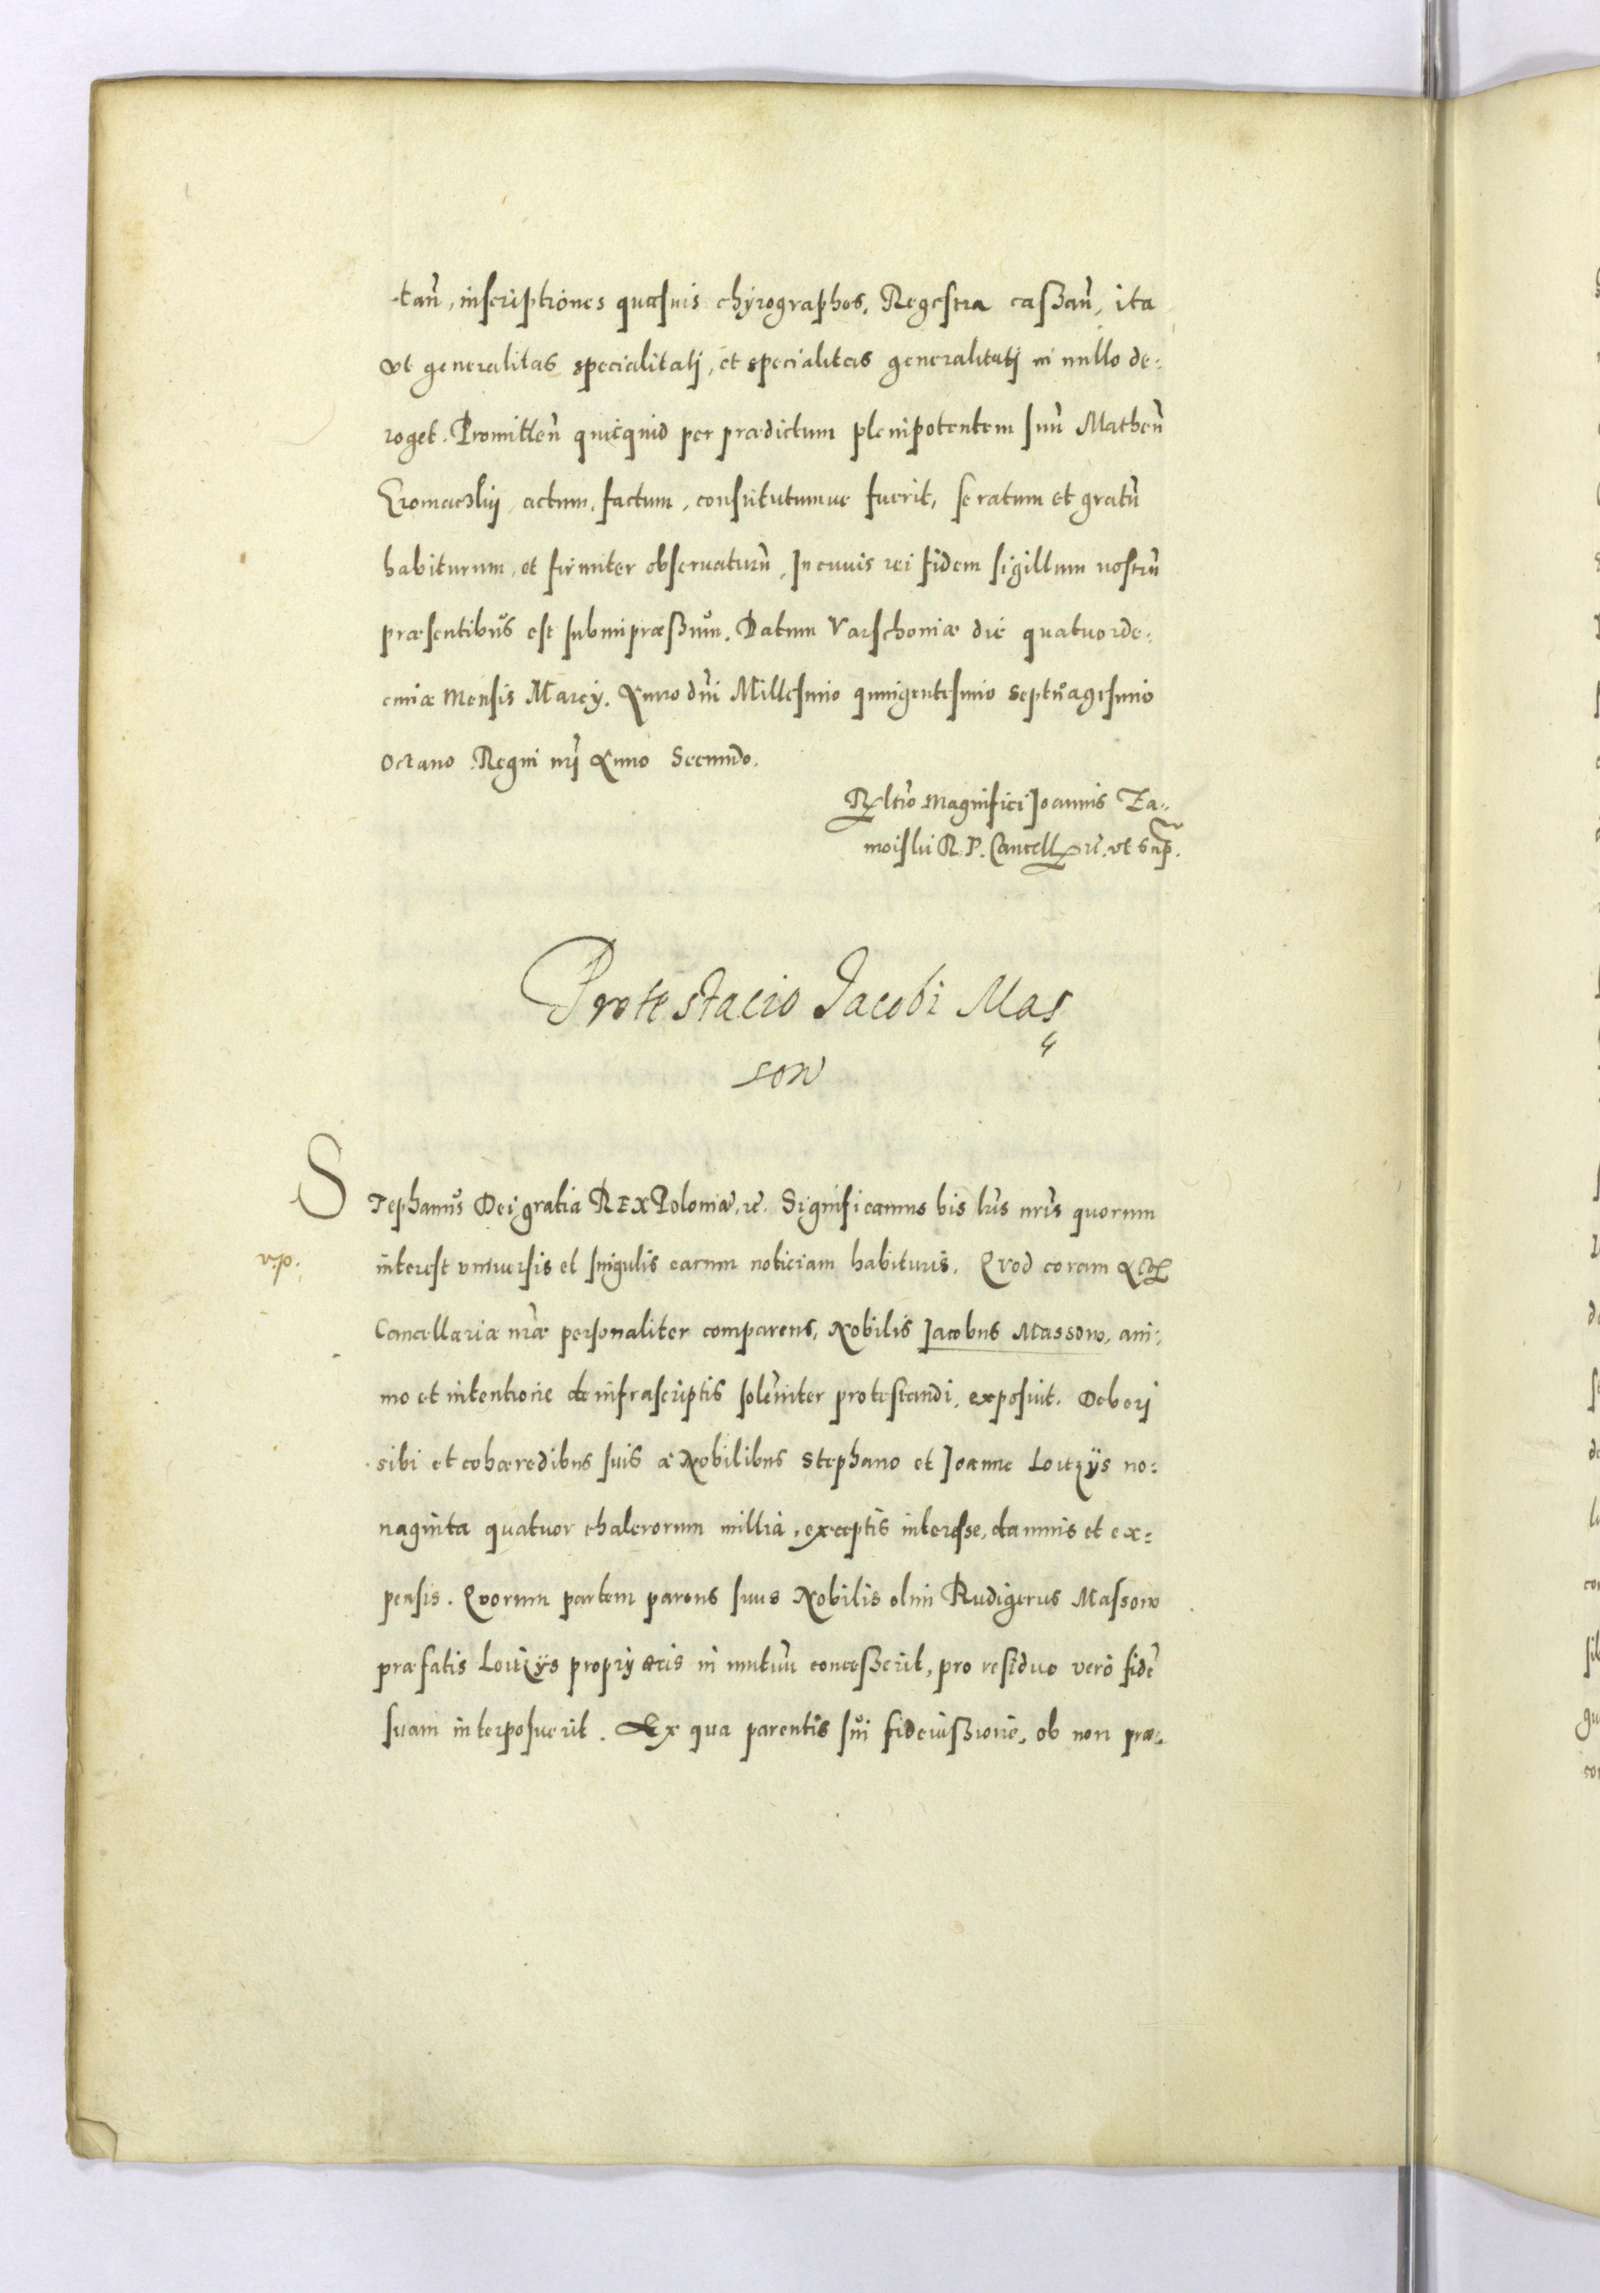 -tañ, inscriptiones quasuis chyrographos, Regestra caßañ, ita
vt generalitas specialitatj, et specialitas generalitatj in nullo de:
roget. Promitteñ quicquid per prædictum plenipotentem suũ Matheũ
actum, factum, constitutumue fuerit, se ratum et gratũ
habiturum, et firmiter obseruaturũ, In cuius rei fidem sigillum nostrũ
præsentibus est submipræßum. Datum Varschouiæ die quatuorde:
cima Mensis Marcy. Anno dñi Millesimo quingentesimo septuagesimo
octauo Regni nrj Anno Secundo.
Reltio Magnifici Joannis Za-
moislii R. P. Cancell. rc. vt sup.
Protestacio Jacobi Mas
sow
Stephanus Dei gratia REX Poloniæ, rc. Significamus his lris nris quorum
v.p.
interest vniuersis et singulis earum noticiam habituris. Quod coram Actis
Cancellariæ nræ personaliter comparens, Nobilis Jacobus Massow, ani:
mo et intentione de infrascriptis solẽniter protestandi, exposuit. Deberj
sibi et cohæredibus suis a Nobilibus Stephano et Joanne Loitzys no:
naginta quatuor thalerorum millia, exceptis interesse, damnis et ex:
pensis. Quorum partem parens suus Nobilis olim Rudigerus Massow
præfatis Loitzys proprij æris in mutuũ conceßerit, pro residuo vero fidẽ
suam interposuerit. Ex qua parentis sui fideiußione, ob non præ: